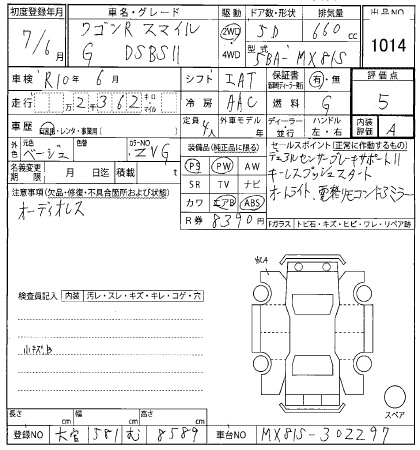 初度登録年月 車名・グレード 駆動 ドア数・形状 排気量 出品NO
7/6月 ワゴンR スマイル 2WD 5D 660 cc 1014
G DSBSII 4WD 型式 5BA-MX81S
車検 R10年 6月 シフト IAT 保証書 有・無 評価点
走行 万2千362 キロ マイル 冷房 AAC 燃料 G 5
車歴 自家用・レンタ・事業用( ) 定員 4人 外車モデル 年 ディーラー・並行 ハンドル 左・右 内装評価 A
外色 元色 ベージュ 色替 カラーNO ZVG 装備品(純正品に限る) セールスポイント(正常に作動するもの)
名義変更期限 月 日迄 積載 t PS PW AW デュアルセンサーブレーキサポートII
注意事項(欠品・修復・不具合箇所および状態) SR TV ナビ キーレスプッシュスタート
オーディオレス カワ エアB ABS オートライト、電格リモコンドアミラー
R券 8390円 Fガラス トビ石・キズ・ヒビ・ワレ・リペア跡
収A
検査員記入 内装 汚レ・スレ・キズ・キレ・コゲ・穴
小キズ
スペア
長さ cm 幅 cm 高さ cm
登録NO 大宮 581 む 8589 車台NO MX81S-302297